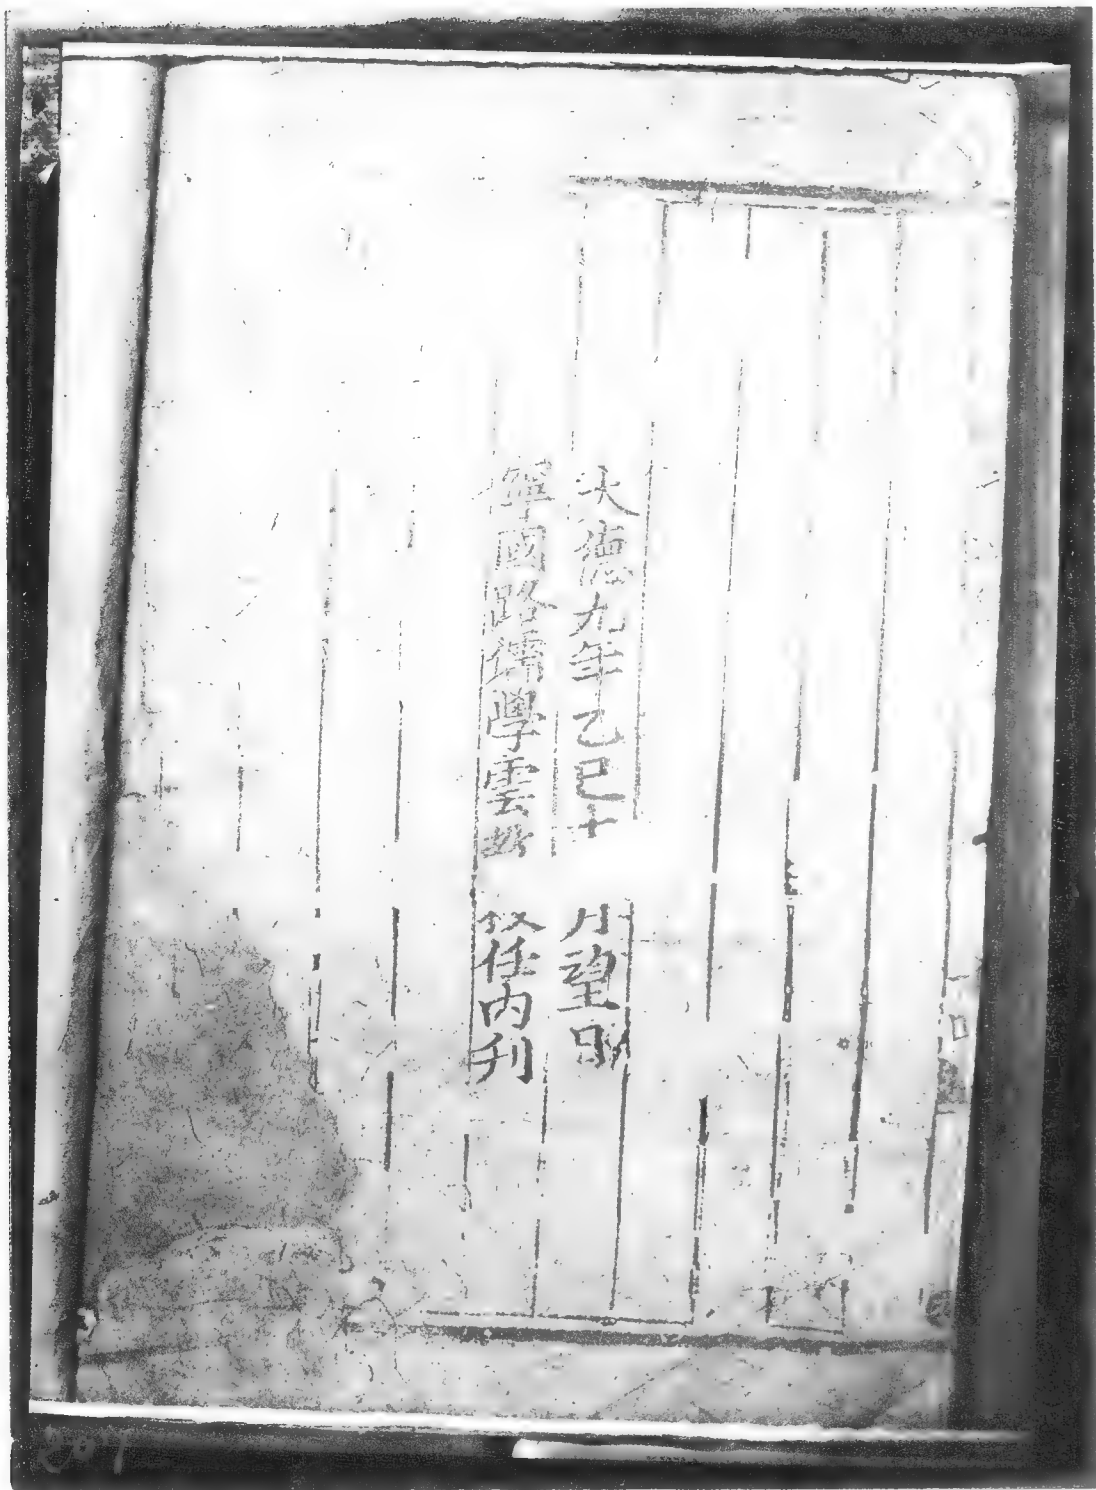 大德九年乙巳十一月望日
寧國路儒學雲教授任內刊